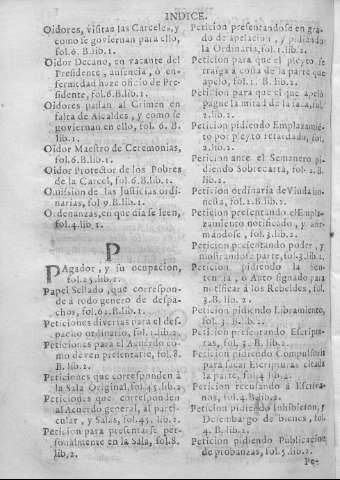 INDICE.
Oidores, visitan las Carceles, y
como se goviernan para ello,
fol.6. B.lib.1.
Oidor Decano, en vacante del
Presidente, ausencia, ò en-
fermedad haze oficio de Pre-
sidente, fol.6.B.lib.1.
Oidores passan al Crimen en
falta de Alcaldes, y como se
goviernan en ello, fol. 6. B.
lib.1.
Oidor Maestro de Ceremonias,
fol.6.B.lib.1.
Oidor Protector de los Pobres
de la Carcel, fol.6.B.lib.1.
Omission de las Justicias ordi-
narias, fol 9.B.lib.1.
Ordenanzas, en que dia se leen,
fol.4.lib 1.
P
PAgador, y su ocupacion,
fol.25.lib.1.
Papel Sellado, que correspon-
de à todo genero de despa-
chos, fol.61.B.lib.1.
Peticiones diversas para el des-
pacho ordinario, fol.1.lib.2.
Peticiones para el Acuerdo co-
mo deven presentarse, fol.8.
B. lib.1.
Peticiones que corresponden à
la Sala Original, fol.45.lib.2.
Peticiones que corresponden
al Acuerdo general, al parti-
cular, y Salas, fol.45. lib.2.
Peticion para presentarse per-
sonalmente en la Sala, fol.8.
lib.2.
Peticion presentandose en gra-
do de apelacion, y pidiendo
la Ordinaria, fol.1.lib.2.
Peticion para que el pleyto se
traiga à costa de la parte que
apelo, fol.1. B.lib.2.
Peticion para que el que apelò
pague la mitad de la
lib.2.
Peticion pidiendo Emplazamie-
to por pleyto retardado, fol.
2.lib.2.
Peticion ante el Semanero pi-
diendo Sobrecarta, fol. 2.B.
lib.2.
Peticion ordinaria de Viuda ho-
nesta, fol.2.B.lib.2.
Peticion presentando el Empla-
zamiento notificado, y
fol.3.lib.2.
Peticion presentando poder, y
mostrandose parte, fol.3.lib.2.
Peticion pidiendo la sen-
tencia, ò Auto signado para
notificar à los Rebeldes, fol.
3.B. lib. 2.
Peticion pidiendo Libramiento,
fol. 3. B.lib. 2.
Peticion presentando Escrip-
ras, fol. 3. B. lib. 2.
Peticion pidiendo Compulsoria
para sacar Escripturas citada
la parte, fol.4 lib.2.
Peticion recusando à Escriva-
nos, fol.4.B.lib.2.
Peticion pidiendo Inhibicion, y
Desembargo de bienes, fol.
4. B.lib.2.
Peticion pidiendo Publicacion
de probanzas, fol.5.lib.2.
Pe-